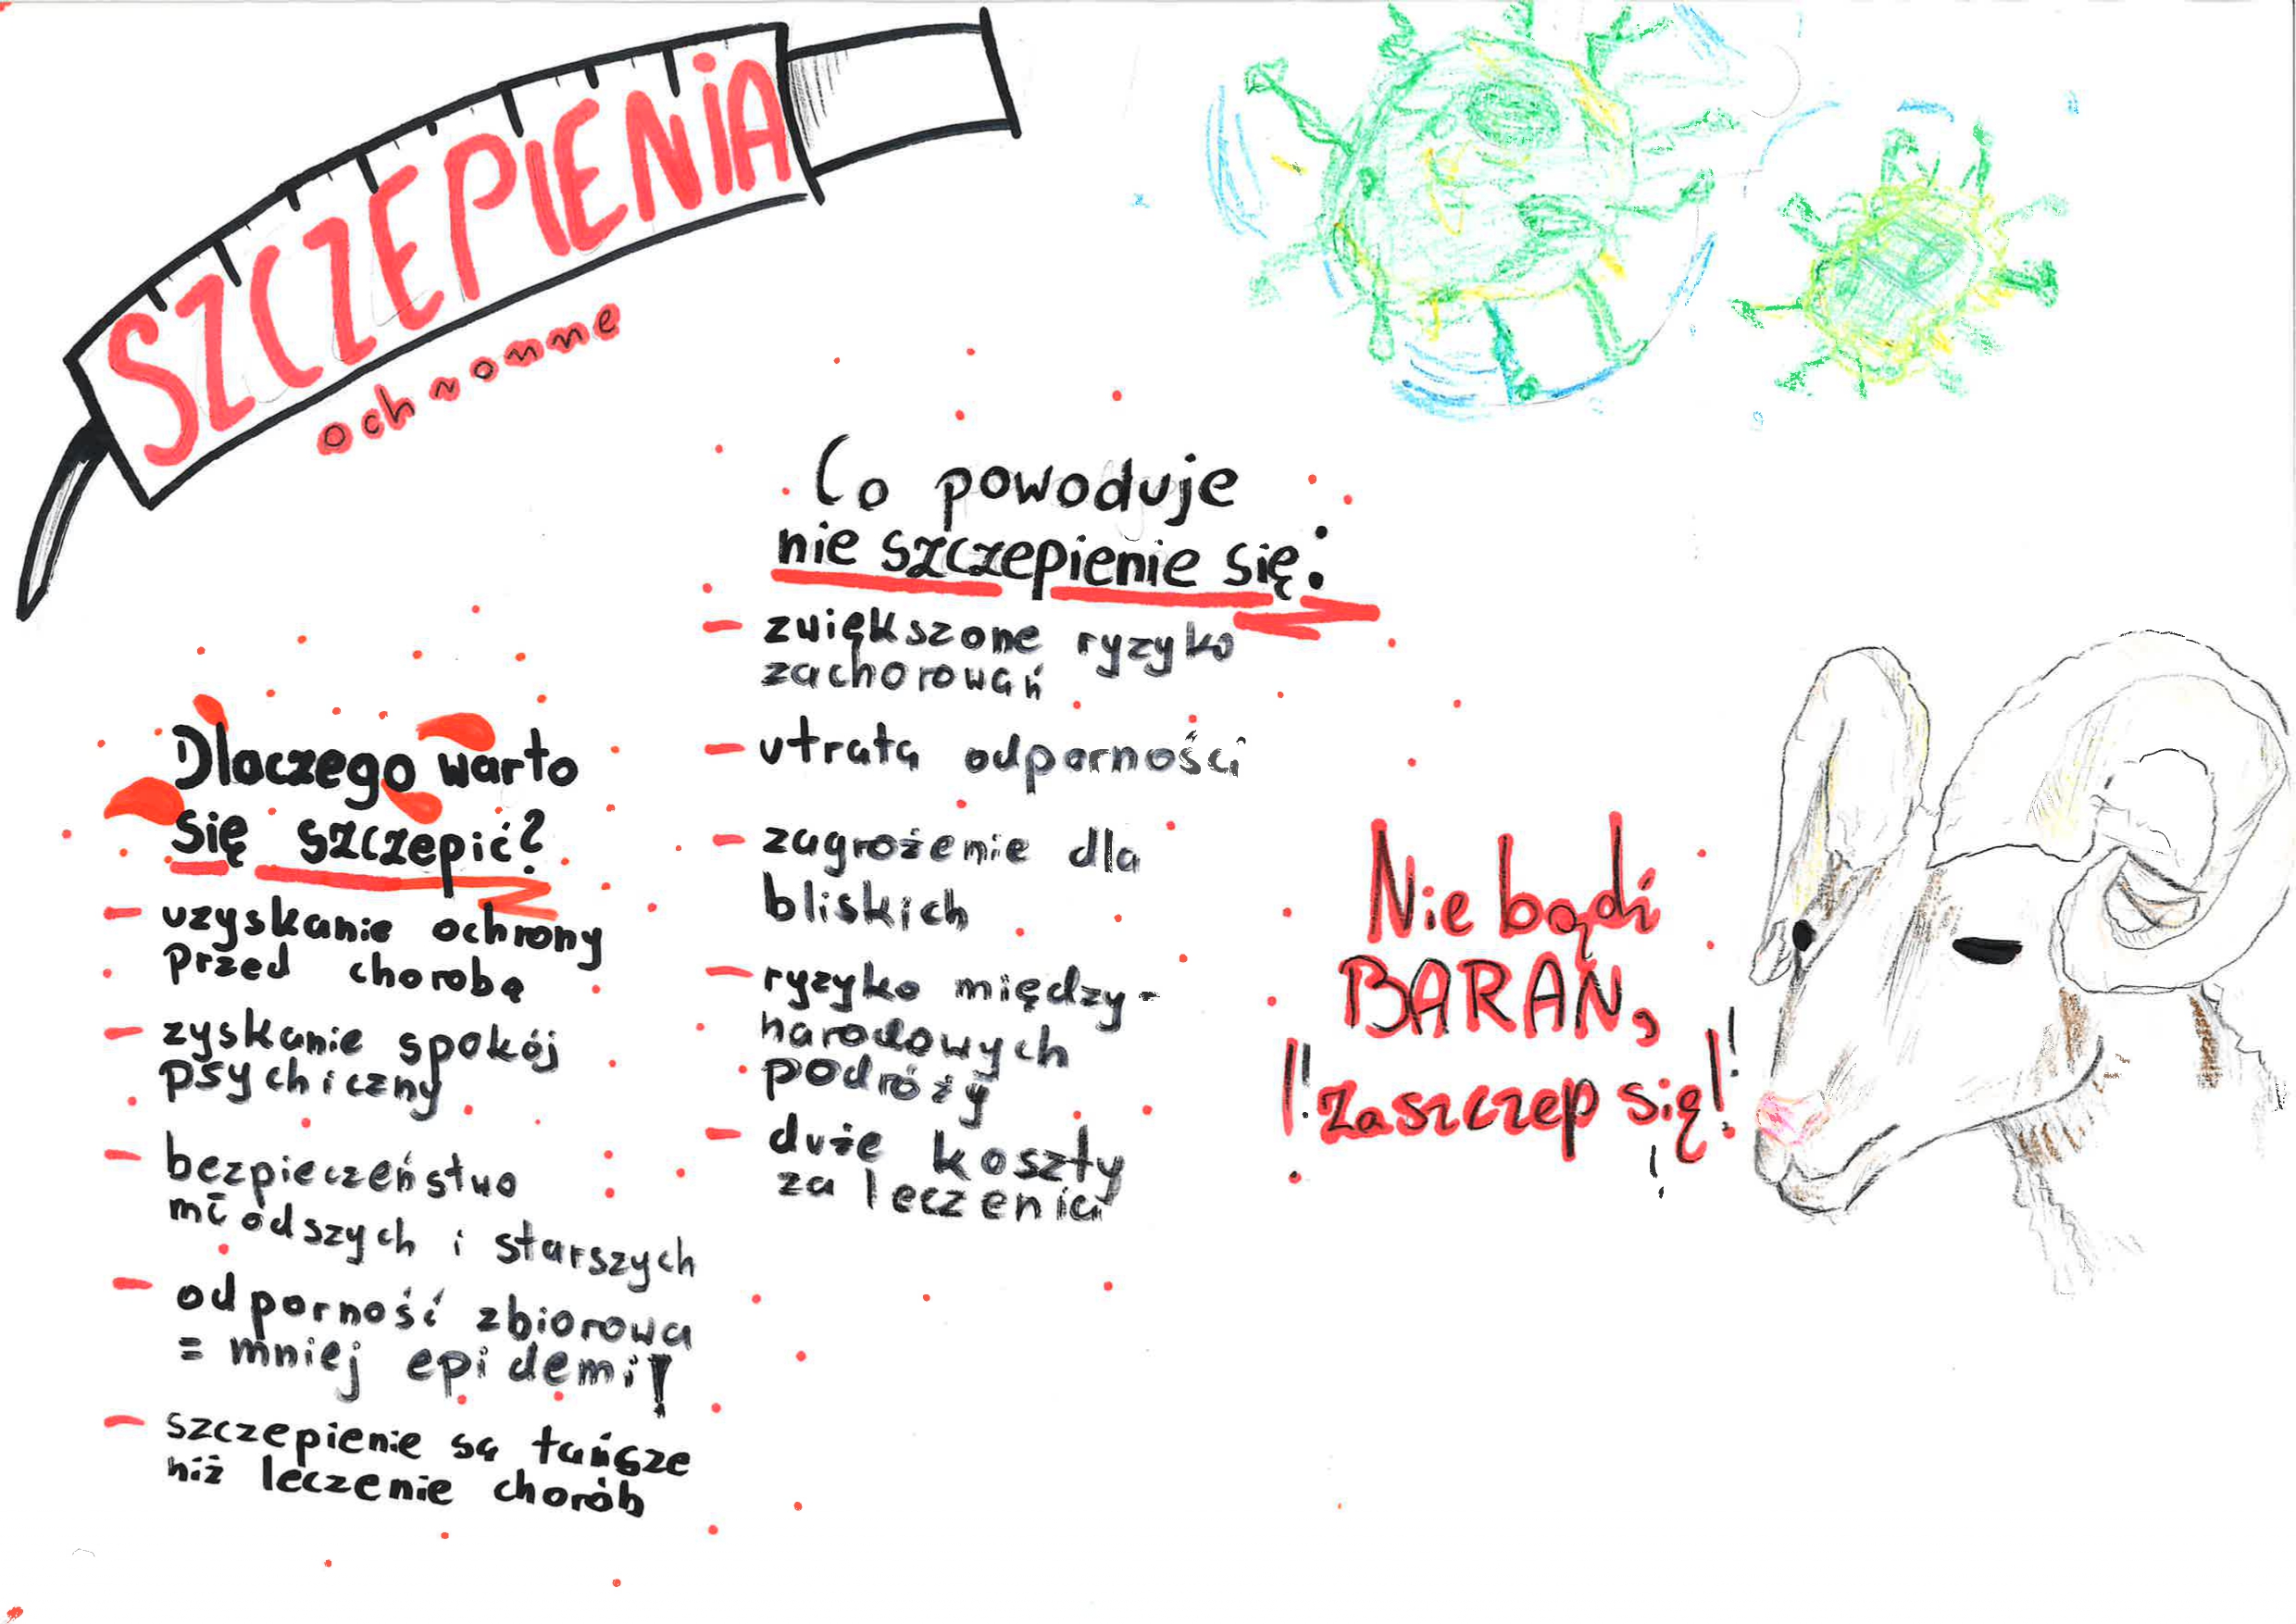 SZCZEPIENIA
ochronne
Dlaczego warto
się szczepić?
- uzyskanie ochrony
przed chorobą
- zyskanie spokój
psychiczny
- bezpieczeństwo
młodszych i starszych
- odporność zbiorowa
= mniej epidemi!
- szczepienie są tańsze
niż leczenie chorób
Co powoduje
nie szczepienie się:
- zwiększone ryzyko
zachorowań
- utrata odporności
- zagrożenie dla
bliskich
- ryzyko między-
narodowych
podróży
- duże koszty
za leczenia
Nie bądź
BARAN,
!! Zaszczep się!!